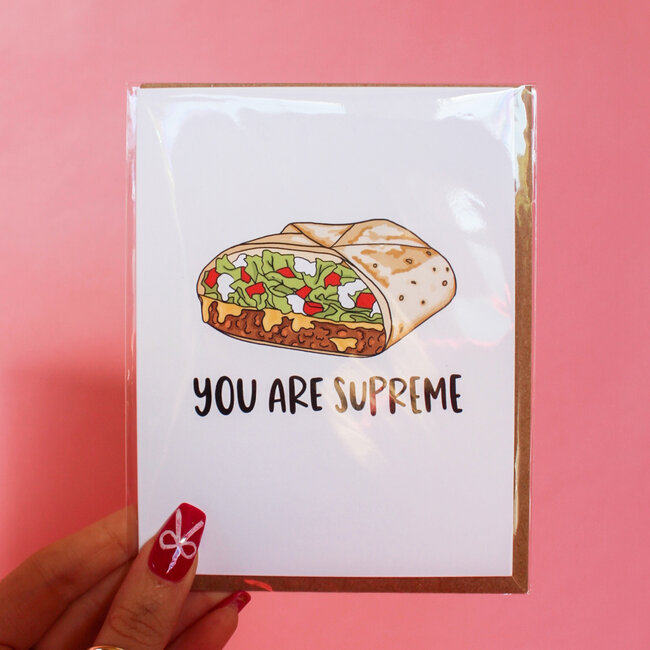 YOU ARE SUPREME